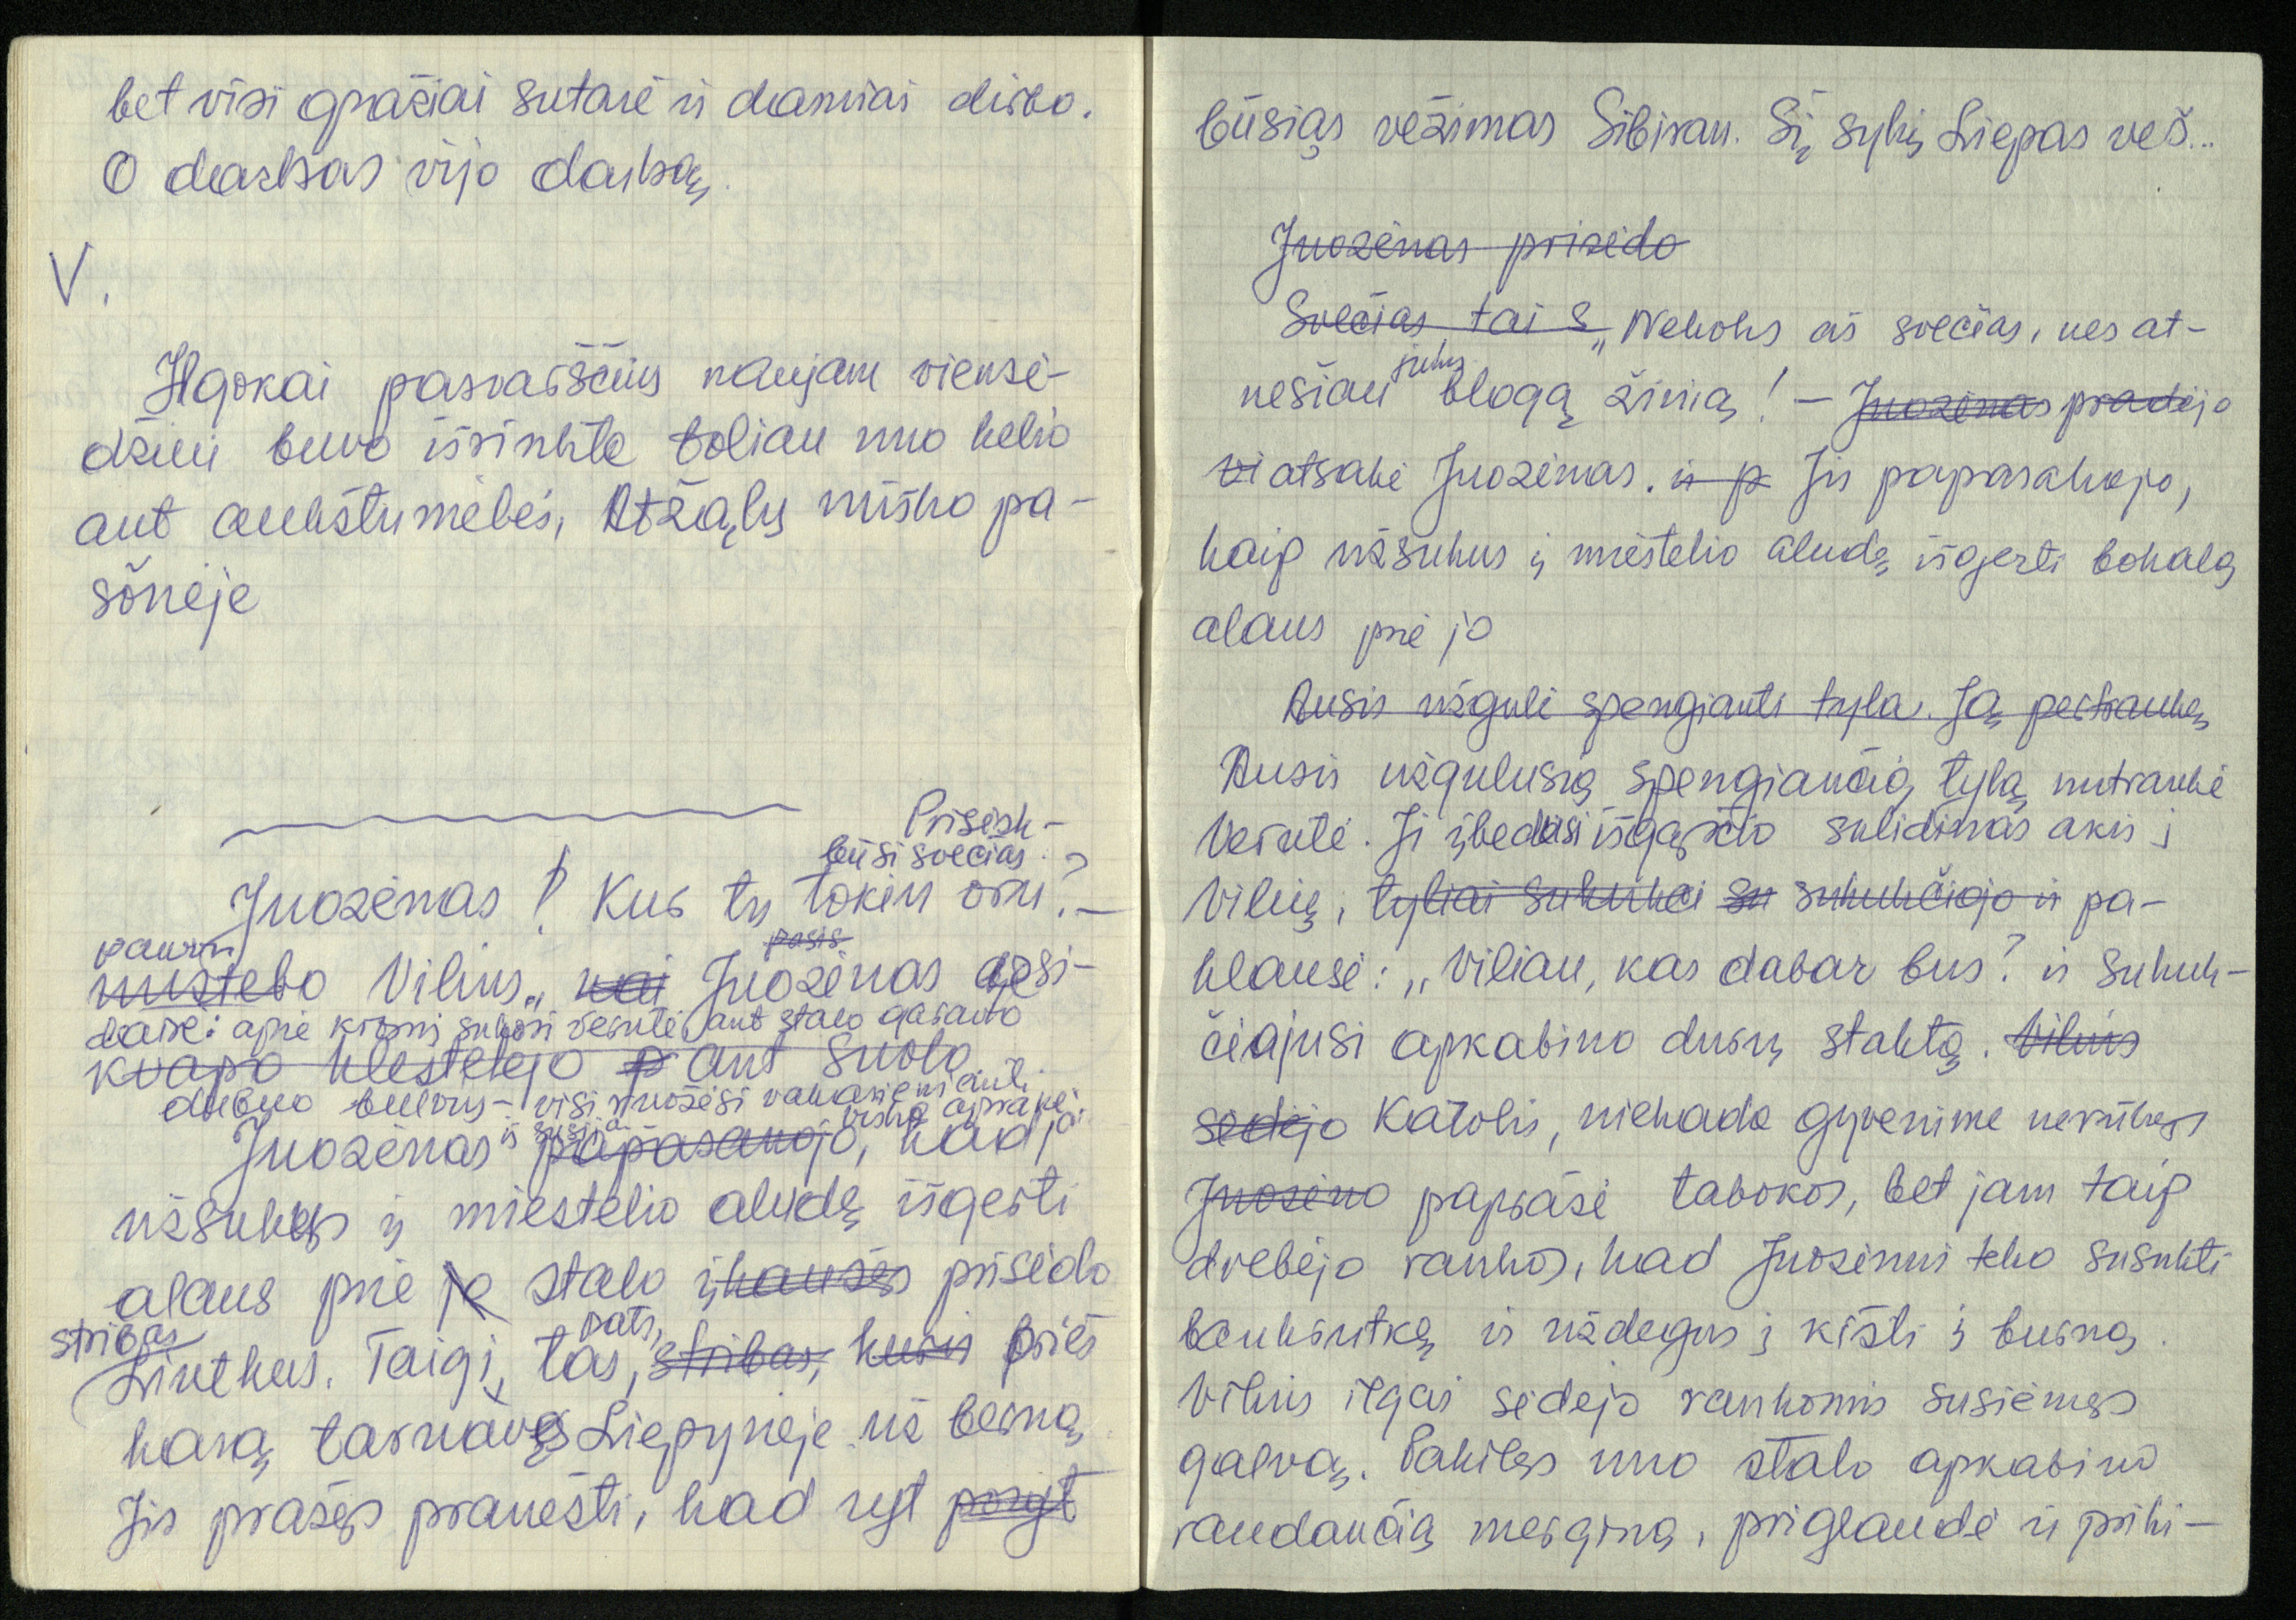 bet visi gražiai sutarė ir darniai dirbo.
O darbas vijo darbą.
V.
Ilgokai pasvarsčius naujam viensė-
džiui buvo išrinkta toliau nuo kelio
ant aukštumėlės, Atžalų miško pa-
šonėje
Prisėsk-
būsi svečias.
Juozėnas! Kur tu tokiu oru? –
pasis
nustebo Vilius. kai Juozėnas apsi-
dairė: apie krosnį sukosi Verutė, ant stalo garavo
kvapo klestelėjo p ant suolo.
dubuo bulvių – visi ruošėsi vakarieniauti.
viską apsakė:
Juozėnas papasakojo, kad ją
užsukęs į miestelio aludę išgerti
alaus prie jo stalo įkaušęs prisėdo
stribas
pats,
Linkus. Taigi, tas, stribas, kuris prieš
karą tarnavęs Liepynėje už berną
Jis prašęs pranešti, kad ryt poryt
būsiąs vežimas Sibiran. Šį sykį Liepas veš...
Juozėnas prisėdo
Svečias tai s „Nekoks aš svečias, nes at-
jums
nešiau blogą žinią! – Juozėnas pradėjo
vi atsakė Juozėnas. ir p Jis papasakojo,
kaip užsukus į miestelio aludę išgerti bokalą
alaus prie jo
Ausis užgulė spengianti tyla. Ją pertraukę
Ausis užgulusią spengiančią tylą nutraukė
Verutė. Ji įbedusi išgąsčio sklidinas akis į
Vilių, tyliai sukukci su sukukčiojo ir pa-
klausė: „Viliau, kas dabar bus? ir sukuk-
čiojusi apkabino durų staktą. Vilius
sėdėjo Katolis, niekada gyvenime nerūkęs
Juozėno paprašė tabokos, bet jam taip
drebėjo rankos, kad Juozėnui teko susukti
bankrutką ir uždegus į kišti į burną.
Vilius ilgai sėdėjo rankomis susiėmęs
galvą. Pakilęs nuo stalo apkabino
raudančią merginą, priglaudė ir priki-